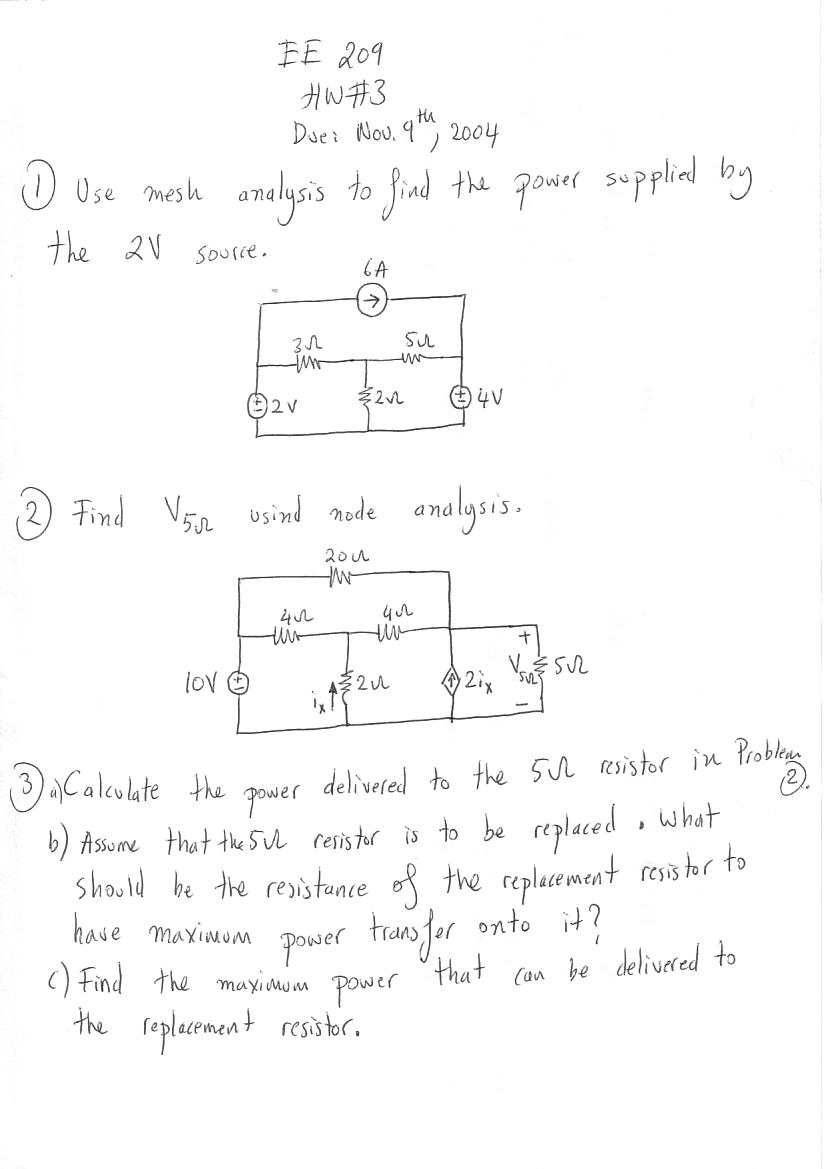 EE 209
HW#3
Due: Nov. 9th, 2004
① Use mesh analysis to find the power supplied by
the 2V source.
6A
3Ω 5Ω
2V 2Ω 4V
② Find V5Ω usind node analysis.
20Ω
4Ω 4Ω
10V ix 2Ω 2ix + V5Ω - 5Ω
③ a) Calculate the power delivered to the 5Ω resistor in Problem
②.
b) Assume that the 5Ω resistor is to be replaced. What
should be the resistance of the replacement resistor to
have maximum power transfer onto it?
c) Find the maximum power that can be delivered to
the replacement resistor.